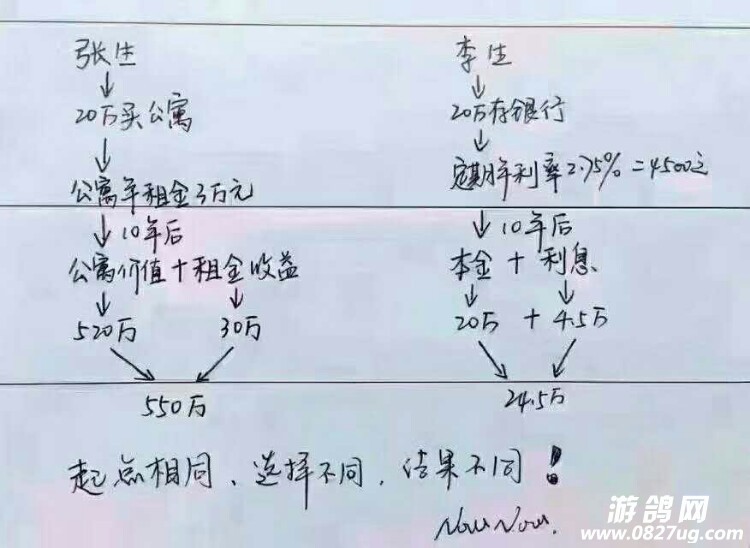 张生
李生
20万买公寓
20万存银行
公寓年租金3万元
定期年利率2.75%=4500元
10年后
10年后
公寓价值+租金收益
本金+利息
520万 30万
20万+4.5万
550万
24.5万
起点相同、选择不同,结果不同!
NowNow.
游鸽网
www.0827ug.com